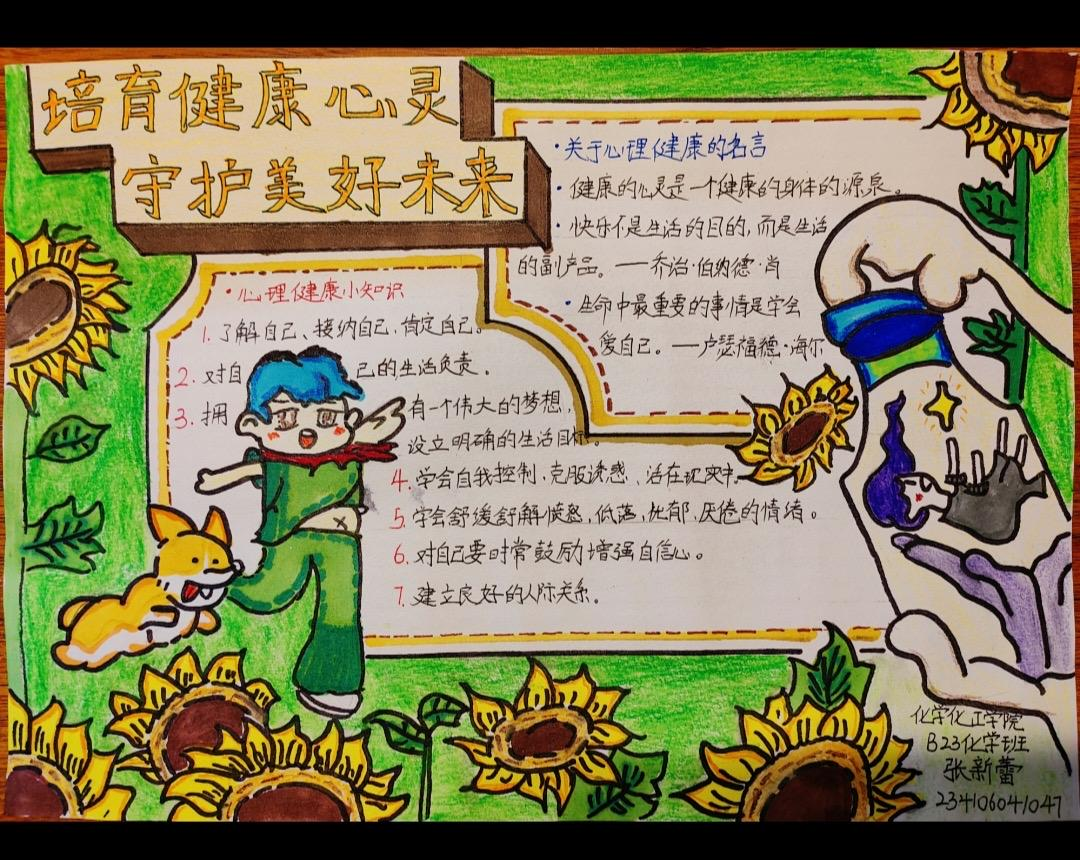 培育健康心灵
守护美好未来
·关于心理健康的名言
·健康的心灵是一个健康的身体的源泉。
·快乐不是生活的目的,而是生活
的副产品。——乔治·伯纳德·肖
·生命中最重要的事情是学会
爱自己。——卢瑟福德·海尔
·心理健康小知识
1.了解自己、接纳自己,肯定自己。
2.对自己的生活负责。
3.拥有一个伟大的梦想,
设立明确的生活目标。
4.学会自我控制,克服诱惑、活在现实中。
5.学会舒缓舒解愤怒,低落,忧郁,厌倦的情绪。
6.对自己要时常鼓励增强自信心。
7.建立良好的人际关系。
化学化工学院
B23化学班
张新蕾
234106041047